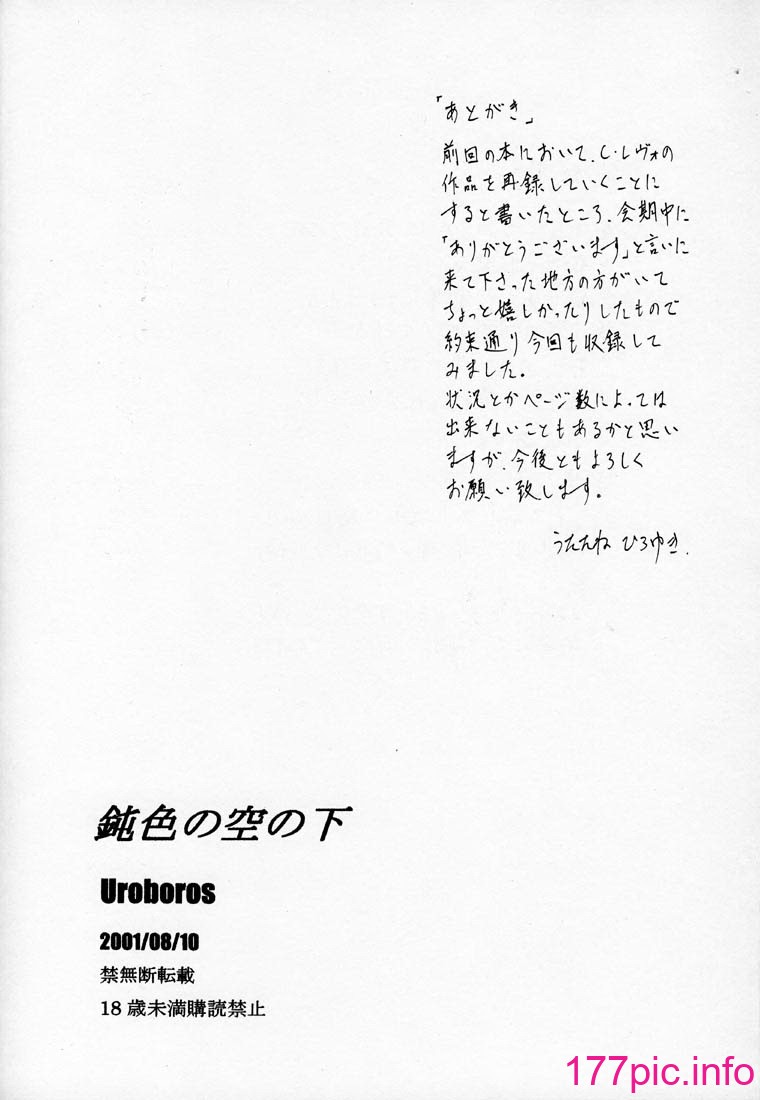 「あとがき」
前回の本において、C・レヴォの
作品を再録していくことに
すると書いたところ、会期中に
「ありがとうございます」と言いに
来て下さった地方の方がいて
ちょっと嬉しかったりしたもので
約束通り今回も収録して
みました。
状況とかページ数によっては
出来ないこともあるかと思い
ますが、今後ともよろしく
お願い致します。
うたたね ひろゆき.
鈍色の空の下
Uroboros
2001/08/10
禁無断転載
18歳未満購読禁止
177pic.info